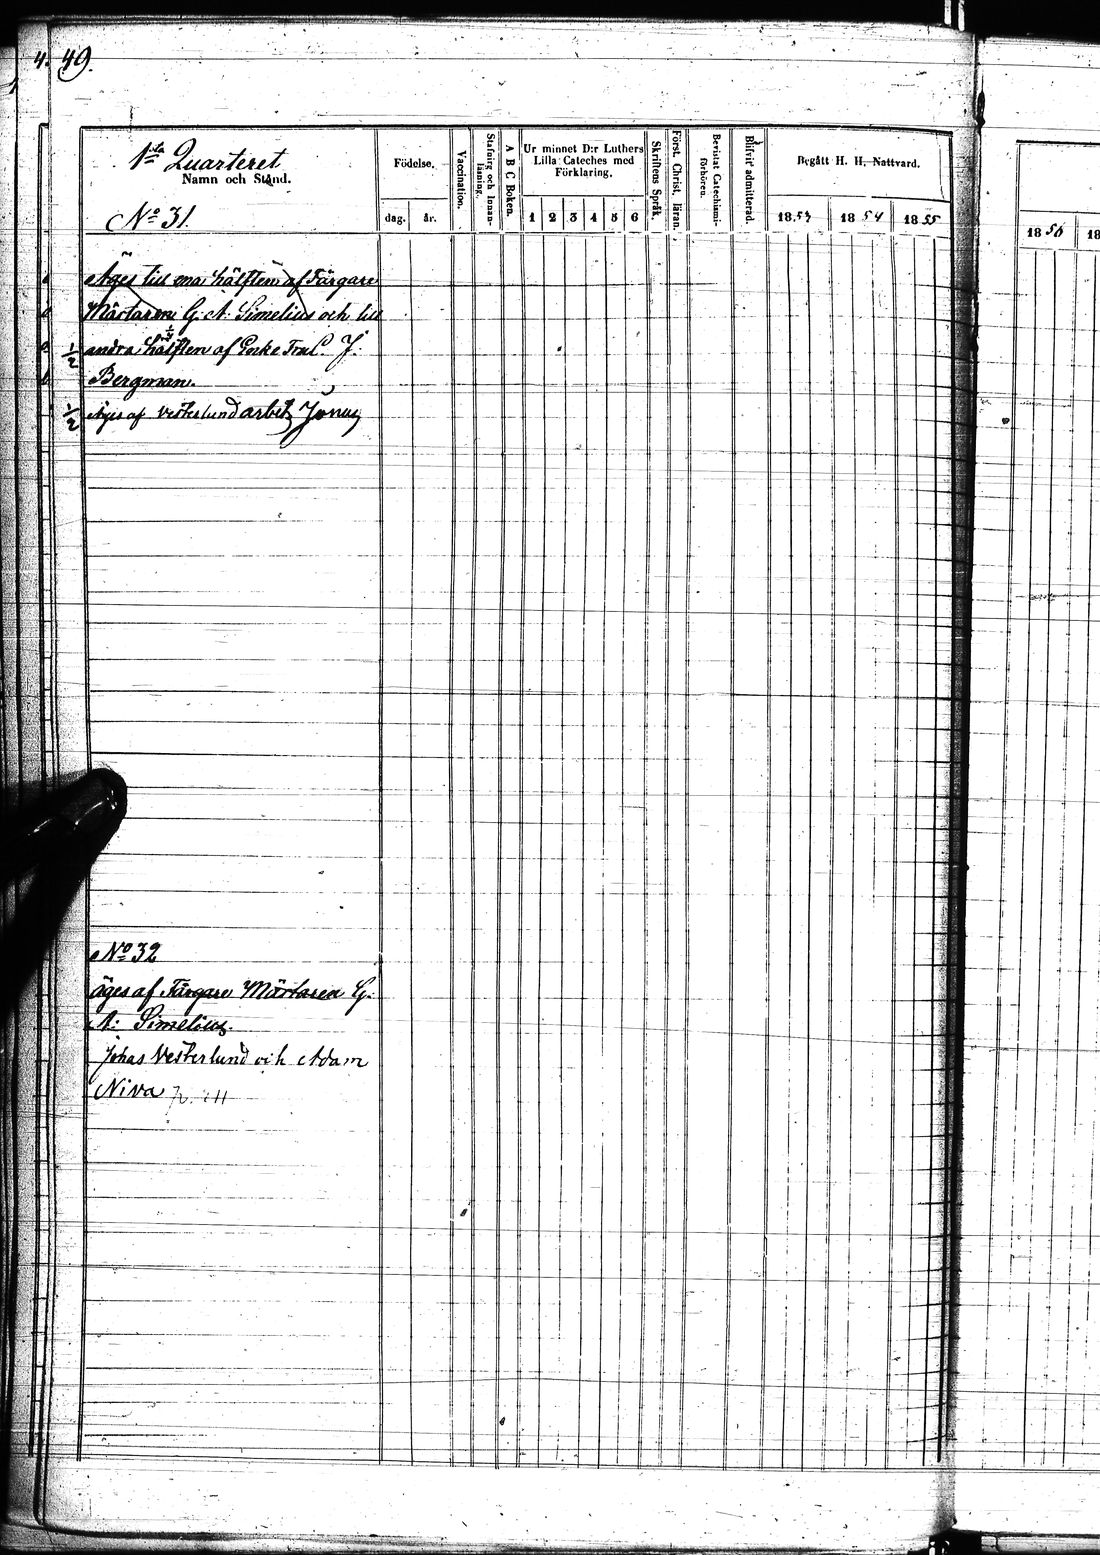 49.
1sta Quarteret
Namn och Stånd.
No 31.
Födelse.
dag.
år.
Vaccination.
Stafning och Innanläsning.
A B C Boken.
Ur minnet D:r Luthers
Lilla Cateches med
Förklaring.
1 2 3 4 5 6
Skriftens Språk.
Först. Christ. läran.
Bevistat Catechismiförhören.
Blifvit admitterad.
Begått H. H. Nattvard.
1853
1854
1855
1856
18
Äges till ena hälften af Färgare
Mästaren G. A. Simelius och till
1/2 andra hälften af Enke Fru C. J.
Bergman.
1/2 Äges af Vesterlund arbet Jonas
No 32
äges af Färgare Mästaren G.
A: Simelius.
Johas Vesterlund och Adam
Niva